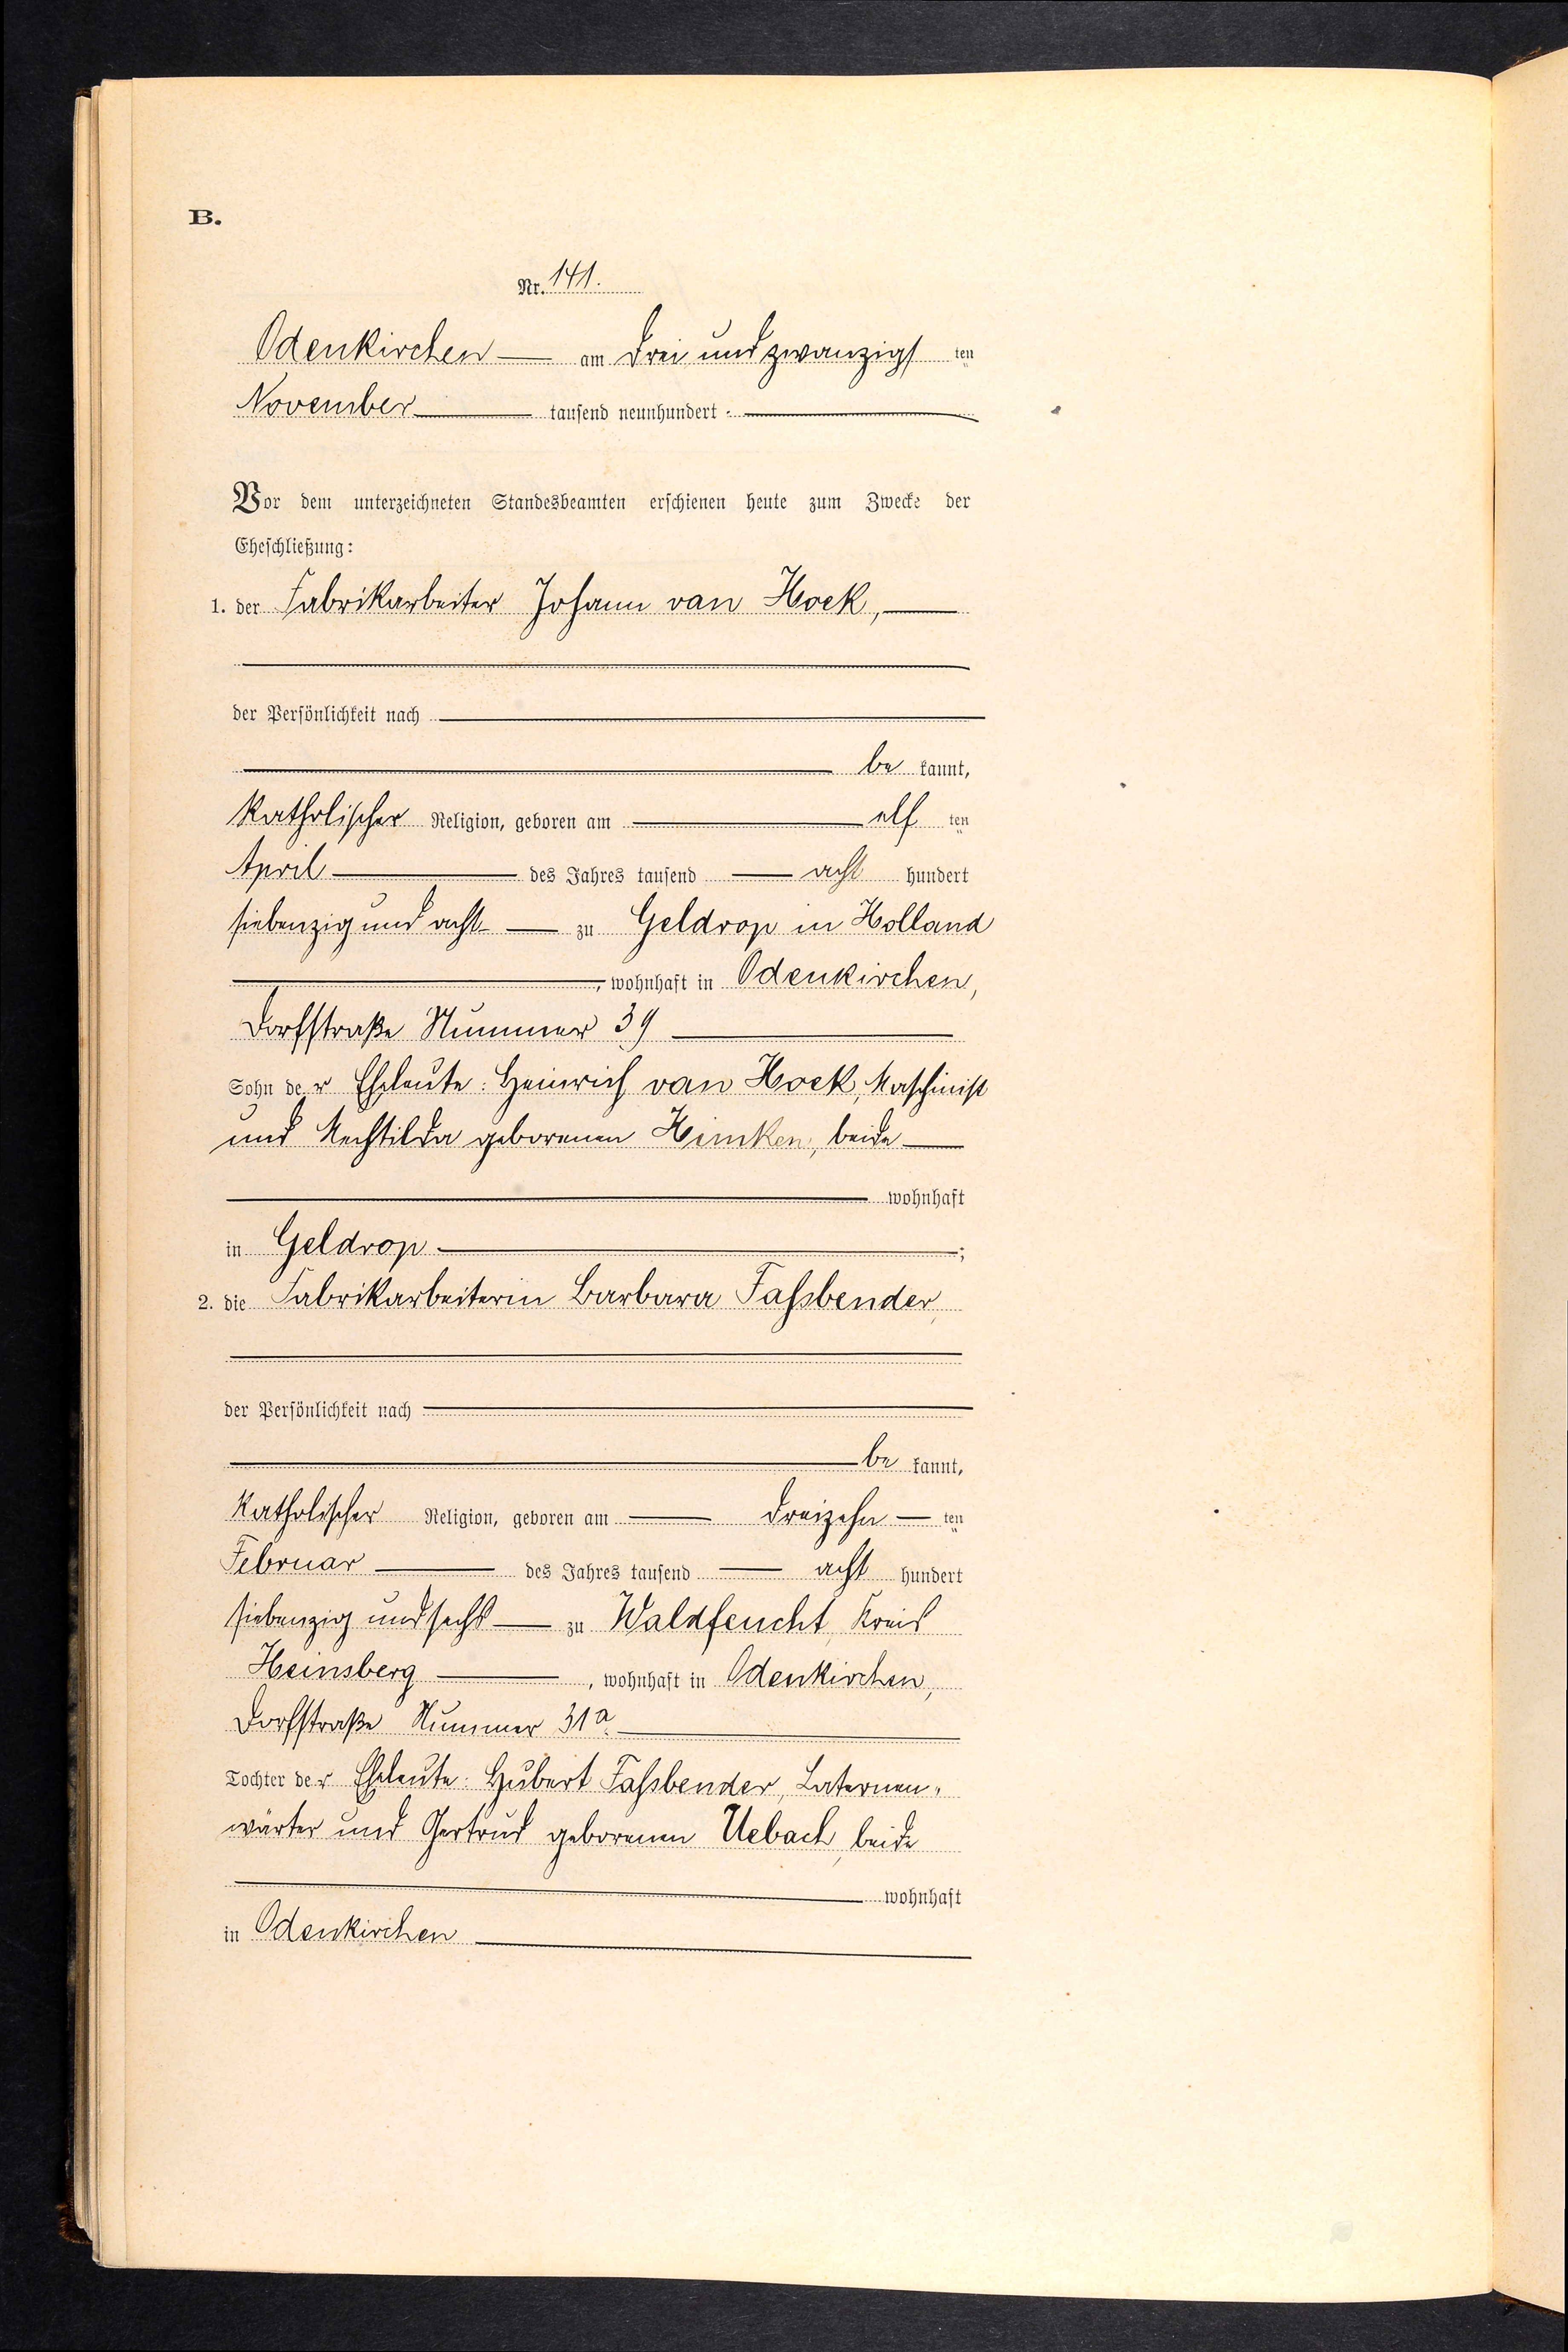 B.
Nr. 141.
Odenkirchen am drei und zwanzigs ten
November tausend neunhundert
Vor dem unterzeichneten Standesbeamten erschienen heute zum Zwecke der
Eheschließung:
1. der Fabrikarbeiter Johann van Hoek,
der Persönlichkeit nach
be kannt,
katholischer Religion, geboren am elf ten
April des Jahres tausend acht hundert
siebenzig und acht zu Geldrop in Holland
, wohnhaft in Odenkirchen,
Dorfstraße Nummer 39
Sohn der Eheleute: Heinrich van Hoek, Maschinist
und Mechtilda geborenen Himken, beide
wohnhaft
in Geldrop ;
2. die Fabrikarbeiterin Barbara Faßbender,
der Persönlichkeit nach
be kannt,
katholischer Religion, geboren am dreizehn ten
Februar des Jahres tausend acht hundert
siebenzig und sechs zu Waldfeucht, Kreis
Heinsberg , wohnhaft in Odenkirchen,
Dorfstraße Nummer 31a
Tochter der Eheleute: Hubert Faßbender, Laternen-
wärter und Gertrud geborenen Uebach, beide
wohnhaft
in Odenkirchen